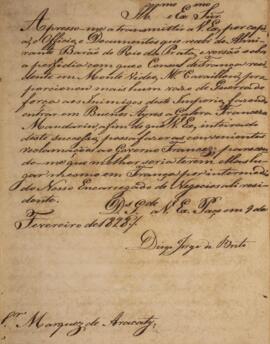 Illmo e Exmo Snr
Apresso-me a transmittir a V. Ex.ª por copia
o Officio, e Documentos que recebi do Almi-
rante Barão do Rio da Prata, e versão sobre
a perfidia com que o Consul de França re-
zidente em Monte Video, Mr. Cavaillon, pro-
porcionou mais hum vazo de Guerra de
força aos Inimigos deste Imperio, fazendo
entrar em Buenos Ayres a Galera Franceza
Mandarin, afim de que V. Ex.ª inteirado
deste successo, possa fazer as convenientes
reclamações ao Governo Francez, parecen-
do-me que melhor seria terem ellas lu-
gar mesmo em França por intermedio
do Nosso Encarregado de Negocios ali re-
zidente.
D.s G.de a V. Ex.ª Paço em 9 de
Fevereiro de 1828.
Diogo Jorge de Brito
Sr. Marquez de Aracaty.